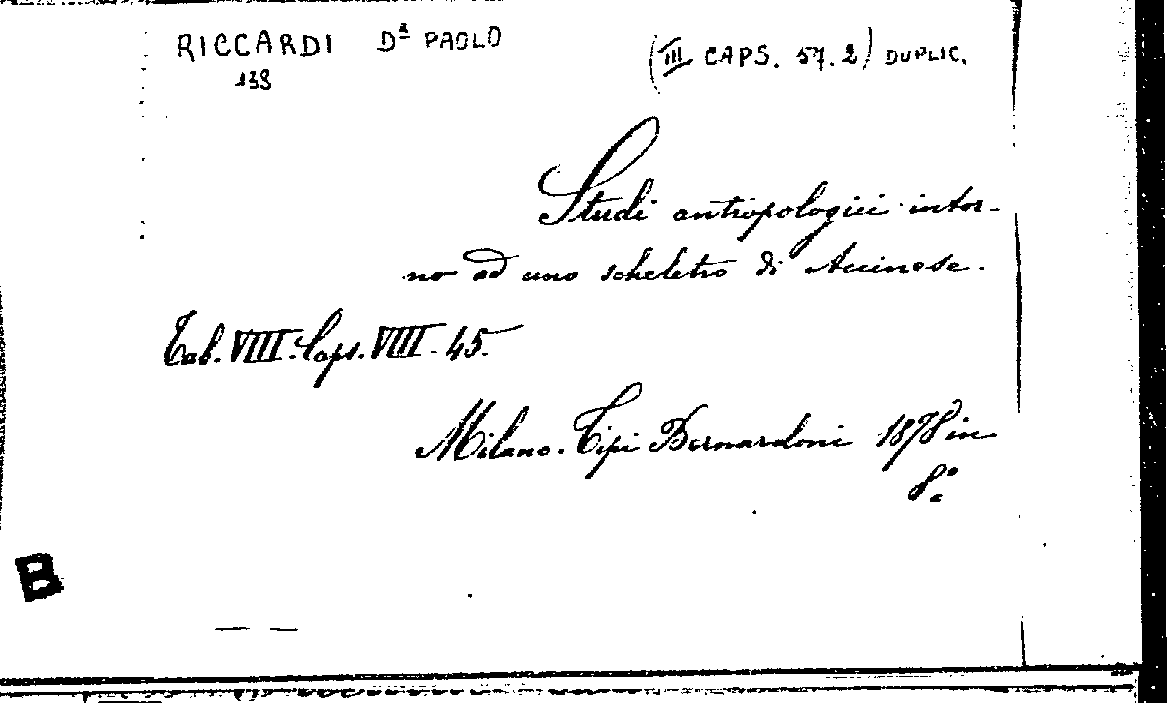 RICCARDI Dr PAOLO
(III CAPS. 57.2) DUPLIC.
138
Studi antropologici intor-
no ad uno scheletro di Accinese.
Tab. VIII. Caps. VIII. 45.
Milano. Tipi Bernardoni 1878 in
8.°
B